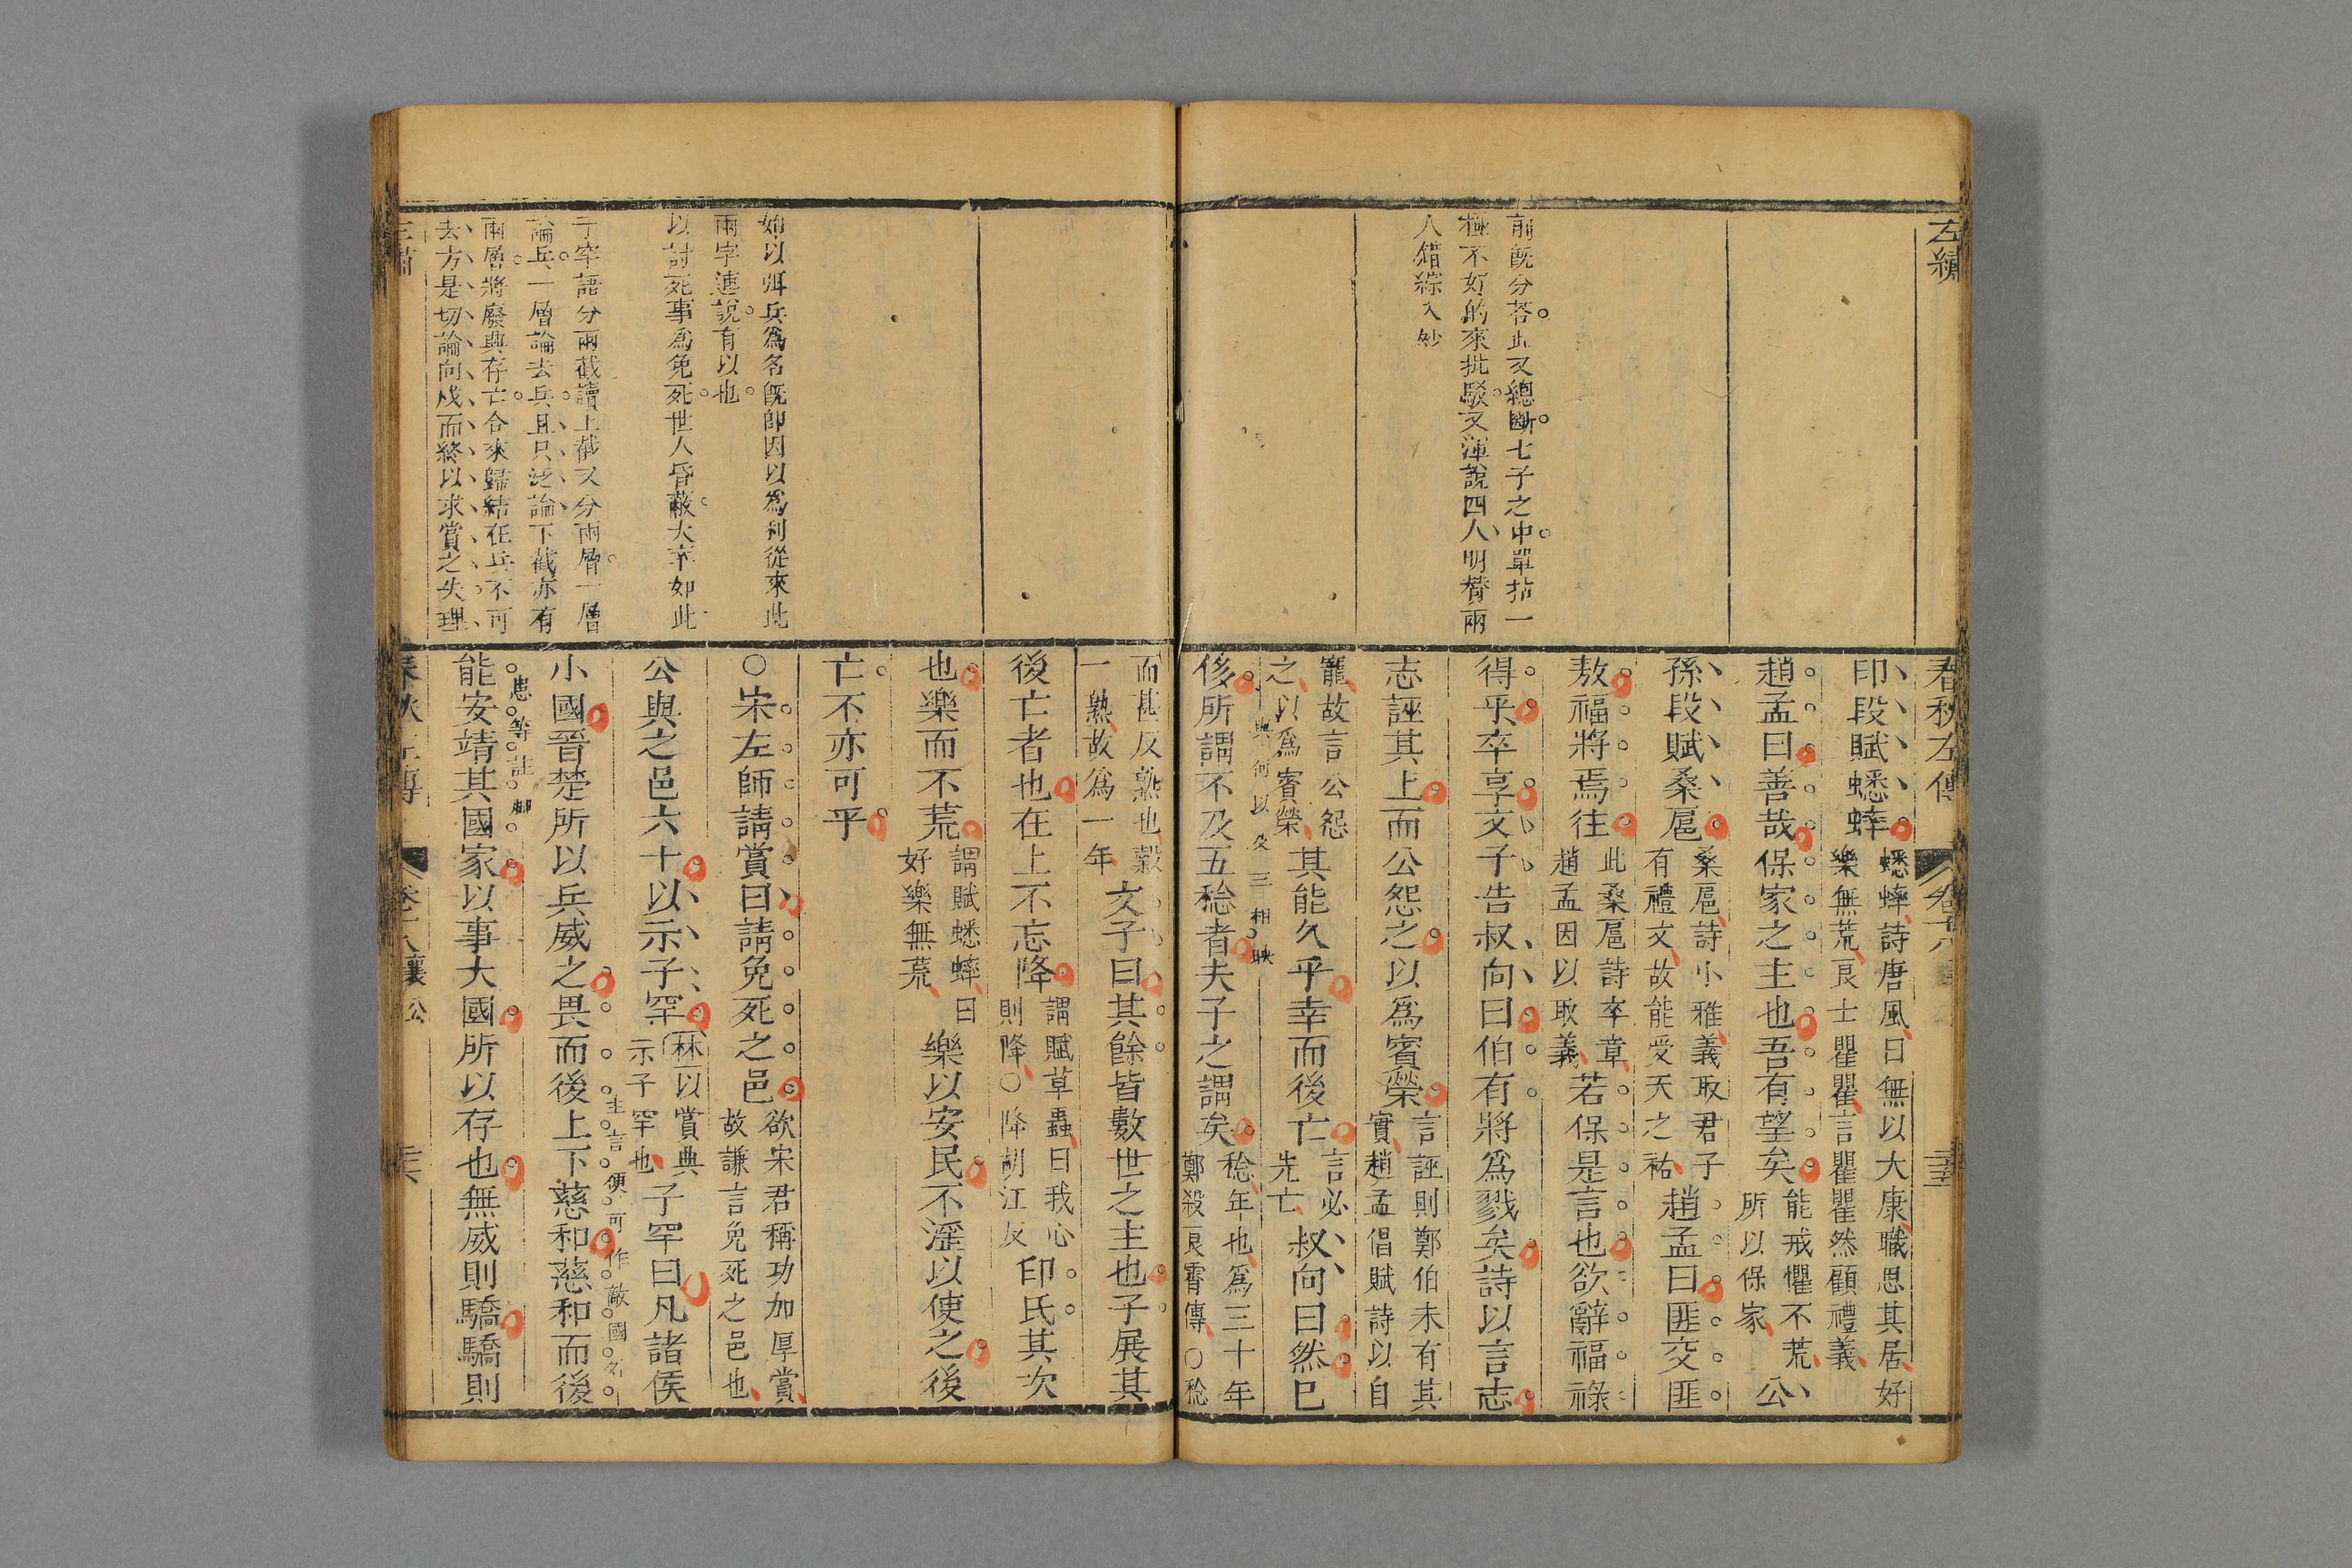 左繡
春秋左傳
卷十八
前既分荅此又總斷七子之中單拈一
極不好的來批駁文渾說四人明贊兩
人錯綜入妙
印段賦蟋蟀
蟋蟀詩唐風曰無以大康職思其居好
樂無荒良士瞿瞿言瞿瞿然顧禮義
趙孟曰善哉保家之主也吾有望矣
能戒懼不荒
所以保家
公
孫段賦桑扈
桑扈詩小雅義取君子
有禮文故能受天之祐
趙孟曰匪交匪
敖福將焉往
此桑扈詩卒章
趙孟因以取義
若保是言也欲辭福祿
得乎卒享文子告叔向曰伯有將爲戮矣詩以言志
志誣其上而公怨之以爲賓榮
言誣則鄭伯未有其
實趙孟倡賦詩以自
寵故言公怨
之以爲賓榮
其能久乎幸而後亡
言必
先亡
叔向曰然已
與何以及三相映
侈所謂不及五稔者夫子之謂矣
稔年也爲三十年
鄭殺良霄傳○稔
始以弭兵爲名既卽因以爲利從來此
兩字連說有以也
以討死事爲免死世人昏蔽大率如此
子罕語分兩截讀上截又分兩層一層
論兵一層論去兵且只泛論下截亦有
兩層將廢興存亡合來歸結在兵不可
去方是切論向戌而終以求賞之失理
而甚反熟也穀
一熟故爲一年
文子曰其餘皆數世之主也子展其
後亡者也在上不忘降
謂賦草蟲曰我心
則降○降胡江反
印氏其次
也樂而不荒
謂賦蟋蟀曰
好樂無荒
樂以安民不淫以使之後
亡不亦可乎
○宋左師請賞曰請免死之邑
欲宋君稱功加厚賞
故謙言免死之邑也
公與之邑六十以示子罕
林以賞典
示子罕也
子罕曰凡諸侯
小國晉楚所以兵威之畏而後上下慈和慈和而後
能安靖其國家以事大國所以存也無威則驕驕則
春秋左傳
卷十八襄公